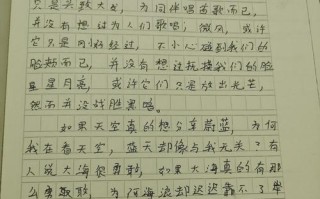 只是头数大么，为同伴唱首歌而已，
并没有想过为人们歌唱；微风，或许
它只是刚好经过，不小心碰到我们的
脸颊而已，并没有想过抚摸我们的脸
星星月亮，或许它们只是放出光芒，
然而并没战胜黑暗。
如果天空真的想分享蔚蓝，为何
我在看天空，蓝天却像与我无关？有
人说大海很勇敢，如果大海真的有那
么勇敢，为何海浪却迟迟靠不了岸